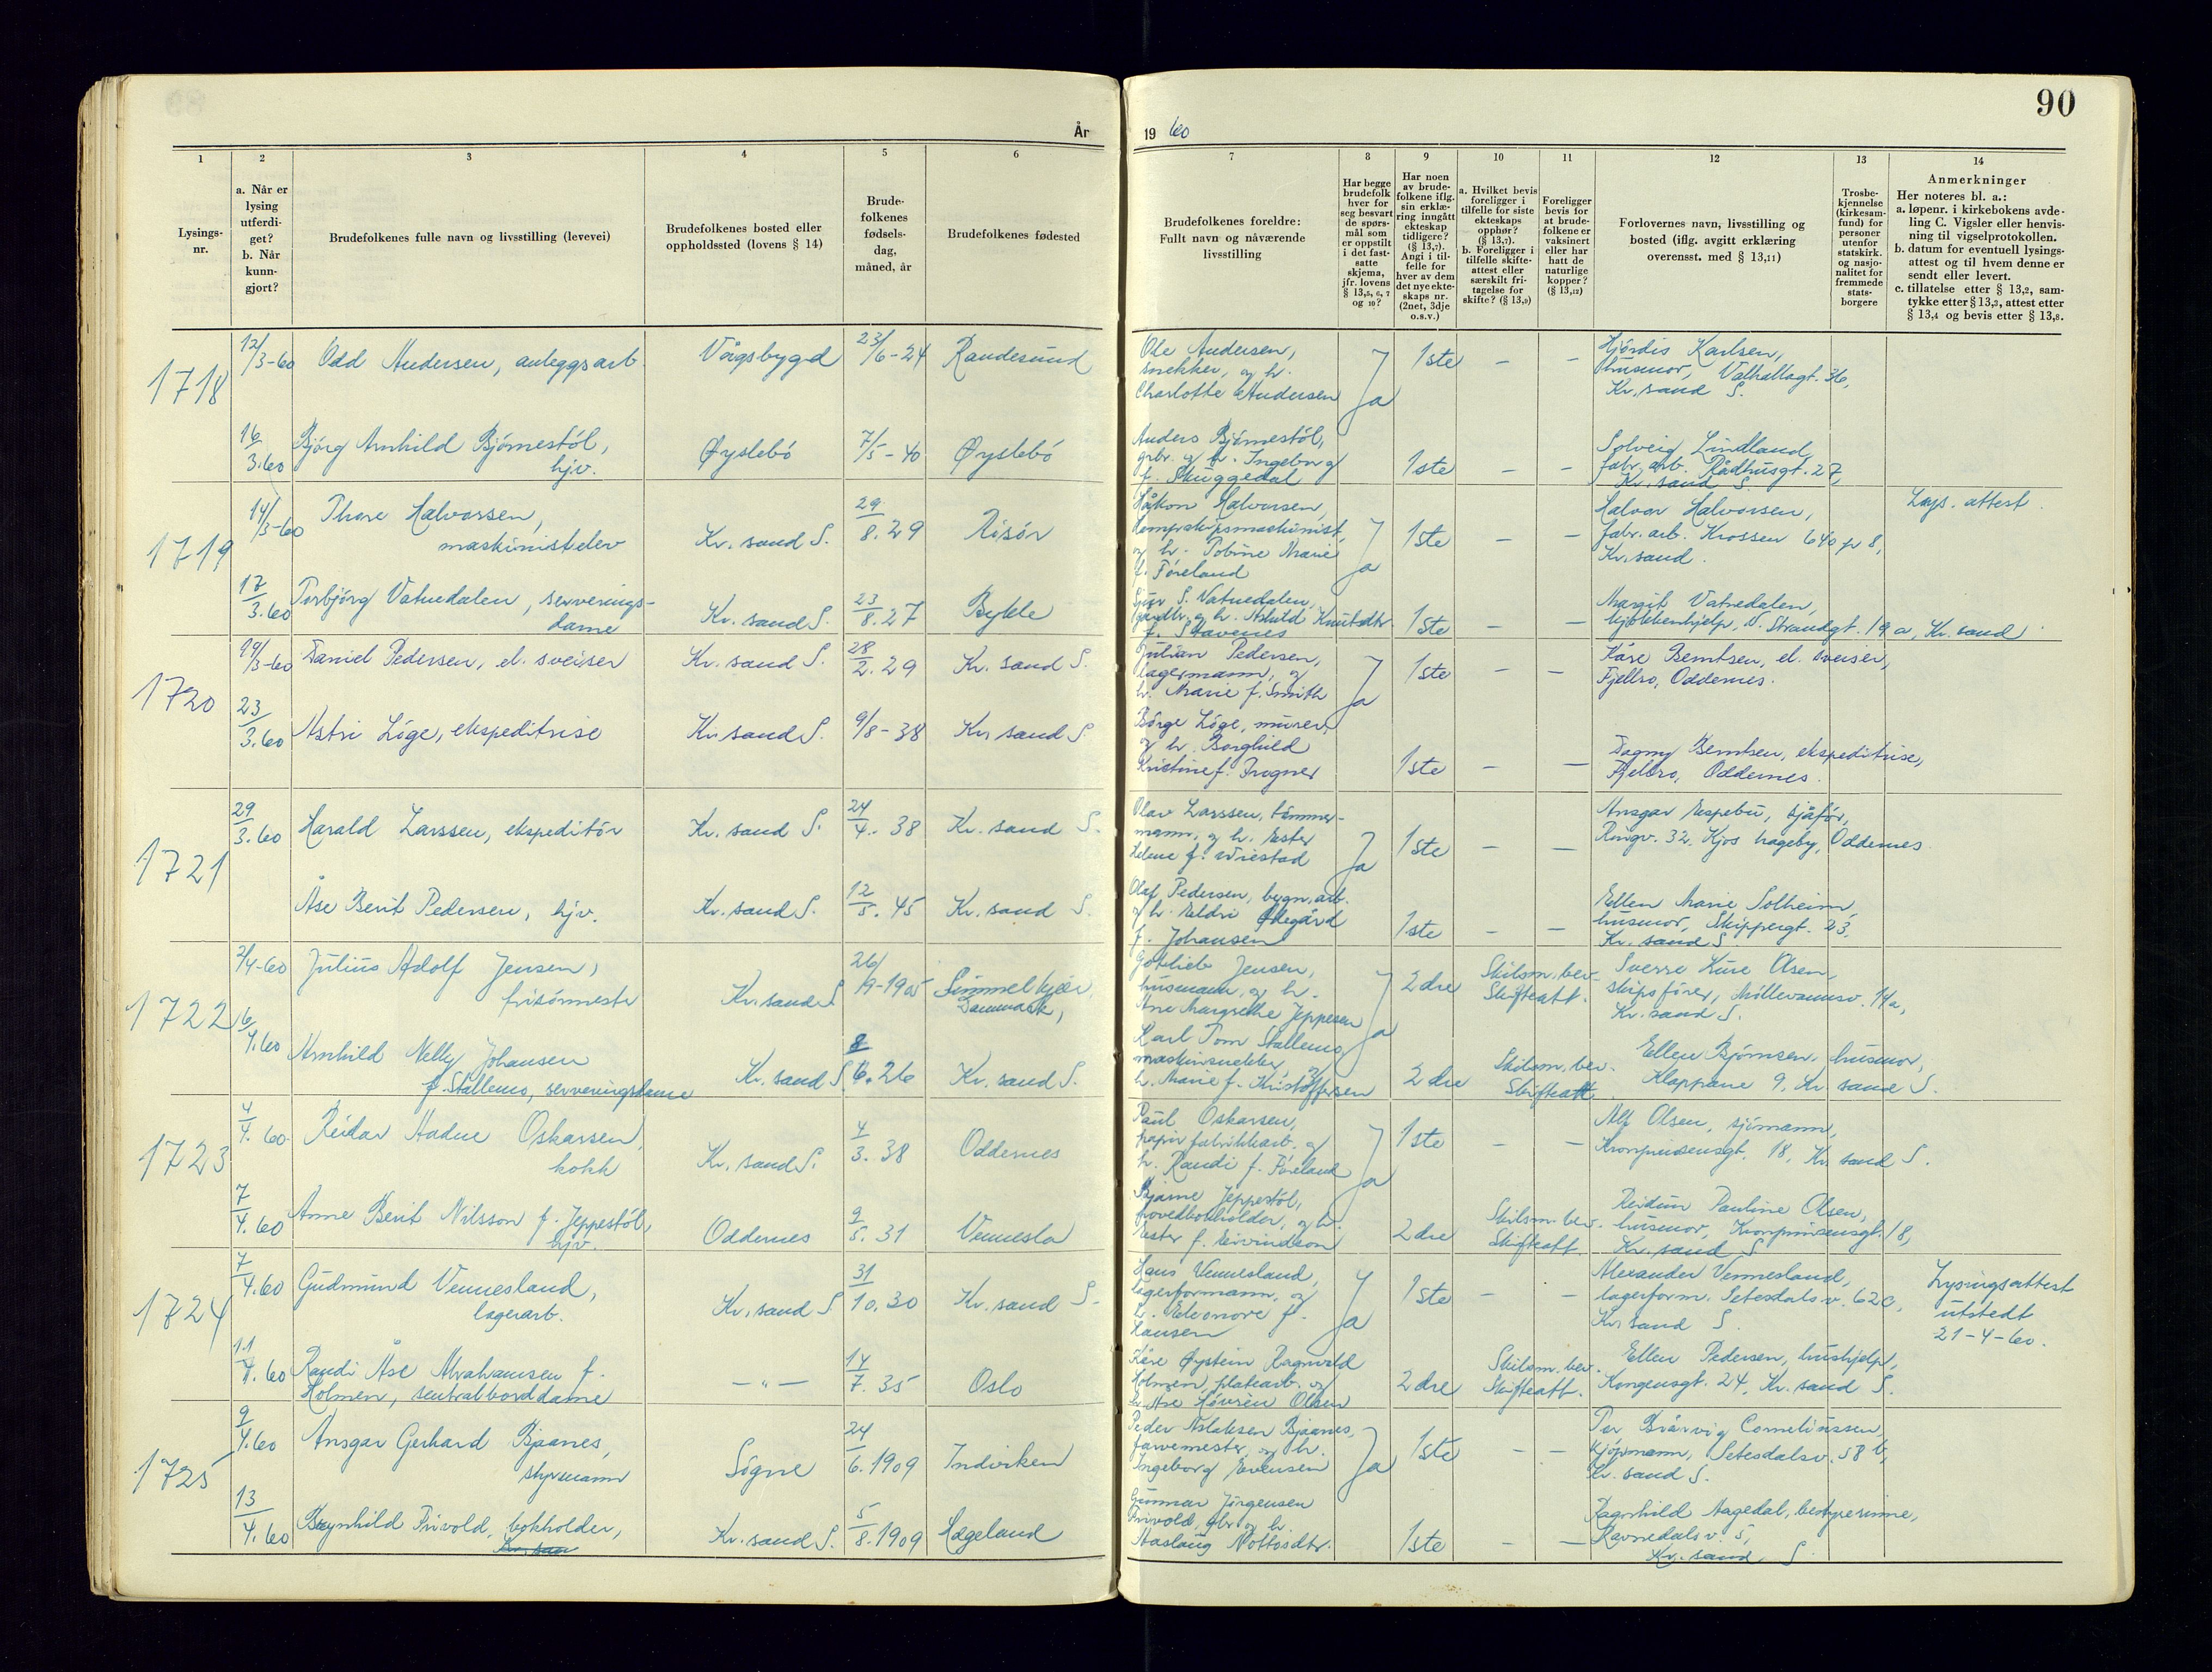 90
År
19 60
1
2
3
4
5
6
7
8
9
10
11
12
13
14
Lysings-
nr.
a. Når er
lysing
utferdi-
get?
b. Når
kunn-
gjort?
Brudefolkenes fulle navn og livsstilling (levevei)
Brudefolkenes bosted eller
oppholdssted (lovens § 14)
Brude-
folkenes
fødsels-
dag,
måned, år
Brudefolkenes fødested
Brudefolkenes foreldre:
Fullt navn og nåværende
livsstilling
Har begge
brudefolk
hver for
seg besvart
de spørs-
mål som
er oppstilt
i det fast-
satte
skjema,
jfr. lovens
§ 13,5, 6, 7
og 10?
Har noen
av brude-
folkene iflg.
sin erklæ-
ring inngått
ekteskap
tidligere?
(§ 13,7).
Angi i til-
felle for
hver av dem
det nye ekte-
skaps nr.
(2net, 3dje
o.s.v.)
a. Hvilket bevis
foreligger i
tilfelle for siste
ekteskaps
opphør?
(§ 13,7).
b. Foreligger i
tilfelle skifte-
attest eller
særskilt fri-
tagelse for
skifte? (§ 13,9)
Foreligger
bevis for
at brude-
folkene er
vaksinert
eller har
hatt de
naturlige
kopper?
(§ 13,12)
Forlovernes navn, livsstilling og
bosted (iflg. avgitt erklæring
overensst. med § 13,11)
Trosbe-
kjennelse
(kirkesam-
fund) for
personer
utenfor
statskirk.
og nasjo-
nalitet for
fremmede
stats-
borgere
Anmerkninger
Her noteres bl. a.:
a. løpenr. i kirkebokens avde-
ling C. Vigsler eller henvis-
ning til vigselprotokollen.
b. datum for eventuell lysings-
attest og til hvem denne er
sendt eller levert.
c. tillatelse etter § 13,2, sam-
tykke etter § 13,3, attest etter
§ 13,4 og bevis etter § 13,8.
1718
12/3-60 Odd Andersen, anleggsarb. Vågsbygd 23/6-24 Randesund
Ole Andersen,
snekker, og h.
Charlotte Andersen
Ja 1ste - -
Hjördis Karlsen,
husmor, Valhallagt. 36,
Kr.sand S.
16/3.60 Bjórg Arnhild Bjórnestól,
hjv.
Øyslebó 7/5-40 Øyslebó
Anders Bjórnestól,
grbr. og h. Ingeborg
f. Skuggedal
1ste - -
Solveig Lindland,
fabr.arb. Rådhusgt. 27,
Kr.sand S.
1719
14/3-60 Thore Halvorsen,
maskinistelev
Kr.sand S. 29/8.29 Risór
Håkon Halvorsen,
dampskipsmaskinist,
og h. Tobine Marie
f. Fóreland
Ja 1ste - -
Halvor Halvorsen,
fabr.arb. Krossen 640 p 8,
Kr.sand.
Lys. attest.
17/3.60 Torbjórg Vatnedalen, serverings-
dame
Kr.sand S. 23/8.27 Bykle
S. Vatnedalen,
gårdbr. og h. Knutdtr
f. Stavenes
1ste - -
Margit Vatnedalen,
kjókkenhjelp, N. Strandgt. 19 a, Kr.sand
1720
14/3-60 Daniel Pedersen, el. sveiser Kr.sand S. 28/2.29 Kr.sand S.
Julian Pedersen,
lagermann, og
h. Marie f. Smith
Ja 1ste - -
Kåre Berntsen, el. sveiser,
Fjellro, Oddernes.
23/3.60 Astri Lóge, ekspeditrise Kr.sand S. 9/8-38 Kr.sand S.
Bórge Lóge, murer,
og h. Borghild
Kristine f. Frogner
1ste - -
Dagny Berntsen, ekspeditrise,
Fjellro, Oddernes.
1721
29/3.60 Harald Larssen, ekspeditór Kr.sand S. 24/4.38 Kr.sand S.
Olav Larssen, tómmer-
mann, og h. Ester
Helene f. Wiestad
Ja 1ste - -
Ansgar Espebu, sjåfór,
Ringv. 32, Kjos hageby, Oddernes
Åse Berit Pedersen, hjv. Kr.sand S. 12/5.45 Kr.sand S.
Olaf Pedersen, bygn.arb.
og h. Eldri Ødegård
f. Johansen
1ste - -
Ellen Marie Solheim,
husmor, Skippergt. 23,
Kr.sand S
1722
2/4-60 Julius Adolf Jensen,
frisórmester
Kr.sand S 26/9-1905 Simmelkjær,
Danmark,
Gotlieb Jensen,
husmann, og h.
Ane Margrethe Jeppesen
Ja 2dre Skilsm.bev.
Skifteatt. -
Sverre Kure Olsen,
skipsfórer, Móllevannsv. 14a,
Kr.sand S.
6/4.60 Arnhild Nelly Johansen
f. Stallemo, serveringsdame
Kr.sand S. 8/6.26 Kr.sand S.
Karl Tom Stallemo,
maskinsnekker, og
h. Marie f. Kristoffersen
2dre Skilsm.bev.
Skifteatt.
Ellen Bjórnsen, husmor,
Klappane 9, Kr.sand S.
1723
4/4.60 Reidar Hadne Oskarsen,
kokk
Kr.sand S. 4/3.38 Oddernes
Paul Oskarsen,
papirfabrikkarb. og
h. Randi f. Fóreland
Ja 1ste - -
Alf Olsen, sjómann,
Kronprinsensgt. 18, Kr.sand S.
7/4.60 Anne Berit Nilsson f. Jeppestól,
hjv.
Oddernes 9/5.31 Vennesla
Bjarne Jeppestól,
hovedbokholder, og h.
Ester f. Eivindson
2dre Skilsm.bev.
Skifteatt.
Reidun Pauline Olsen,
husmor, Kronprinsensgt. 18,
Kr.sand S
1724
7/4.60 Gudmund Vennesland,
lagerarb.
Kr.sand S 31/10.30 Kr.sand S.
Hans Vennesland,
lagerformann, og
h. Eleonore f.
Hansen
Ja 1ste - -
Alexander Vennesland,
lagerform. Setesdalsv. 62c,
Kr.sand S.
Lysingsattest
utstedt
21-4-60.
11/4.60 Randi Åse Abrahamsen f.
Holmen, sentralborddame
-"- 14/7.35 Oslo
Kåre Øystein Ragnvald
Holmen, platearb. og
h. Åse Olsen
2dre Skilsm.bev.
Skifteatt.
Ellen Pedersen, hushjelp,
Kongensgt. 24, Kr.sand S.
1725
9/4.60 Ansgar Gerhard Bjaanes,
styrmann
Sógne 24/6.1909 Indviken
Peder Aslaksen Bjaanes,
farvemester, og h.
Ingeborg Evensen
Ja 1ste - -
Per Bråvig Corneliussen,
kjópmann, Setesdalsv. 58 b,
Kr.sand S.
13/4.60 Brynhild Trivold, bokholder,
Kr.sand S. 5/8.1909 Hægeland
Gunnar Jórgensen
Trivold, gbr og h.
Aaslaug Nottosdtr.
1ste - -
Ragnhild Aagedal, bestyrerinne,
Ravnedalsv. 5,
Kr.sand S